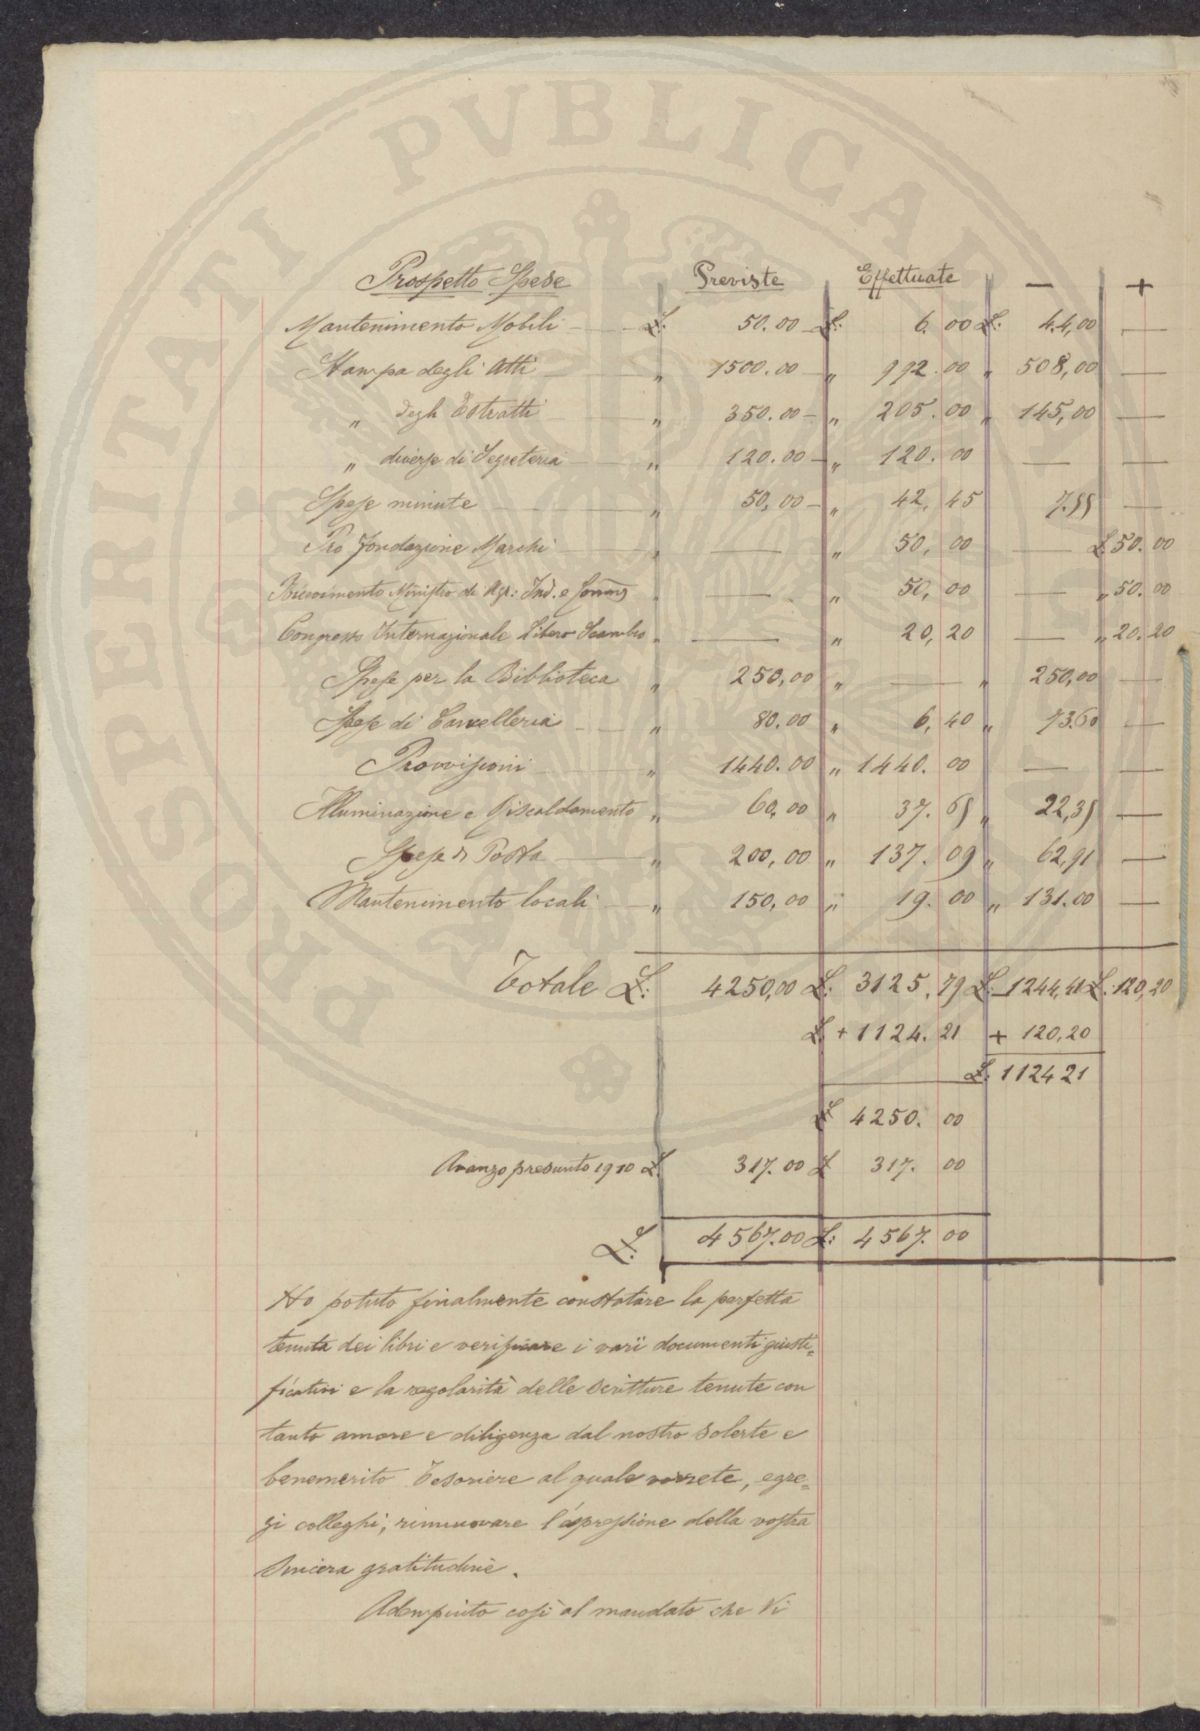 PROSPERITATI PVBLICAE
Prospetto Spese Previste Effettuate — +
Mantenimento Mobili £: 50.00 £: 6.00 £: 44,00 —
Stampa degli Atti " 1500.00 " 992.00 " 508,00 —
" degli Estratti " 350.00 " 205.00 " 145,00 —
" diverse di Segreteria " 120.00 " 120.00 — —
Spese minute " 50,00 " 42,45 7.55 —
Pro fondazione Marchi — " 50,00 — £ 50.00
Ricevimento Ministro di Agr: Ind. e Comm " — " 50,00 — " 50.00
Congresso Internazionale Libero Scambio " — " 20,20 — " 20.20
Spese per la Biblioteca " 250,00 " — " 250,00 —
Spese di Cancelleria " 80.00 " 6,40 " 73.60 —
Provvisioni " 1440.00 " 1440.00 — —
Illuminazione e Riscaldamento " 60,00 " 37.65 " 22,35 —
Spese di Posta " 200,00 " 137.09 " 62,91 —
Mantenimento locali " 150,00 " 19.00 " 131.00 —
Totale £: 4250,00 £: 3125,79 £: 1244,41 £: 120,20
£ + 1124.21 + 120,20
£: 1124 21
£ 4250.00
Avanzo presunto 1910 £. 317.00 £ 317.00
£: 4567.00 £: 4567.00
Ho potuto finalmente constatare la perfetta
tenuta dei libri e verificare i varii documenti giusti=
ficativi e la regolarità delle scritture tenute con
tanto amore e diligenza dal nostro solerte e
benemerito Tesoriere al quale vorrete, egre=
gi colleghi, rinnovare l'espressione della vostra
sincera gratitudine.
Adempiuto così al mandato che Vi